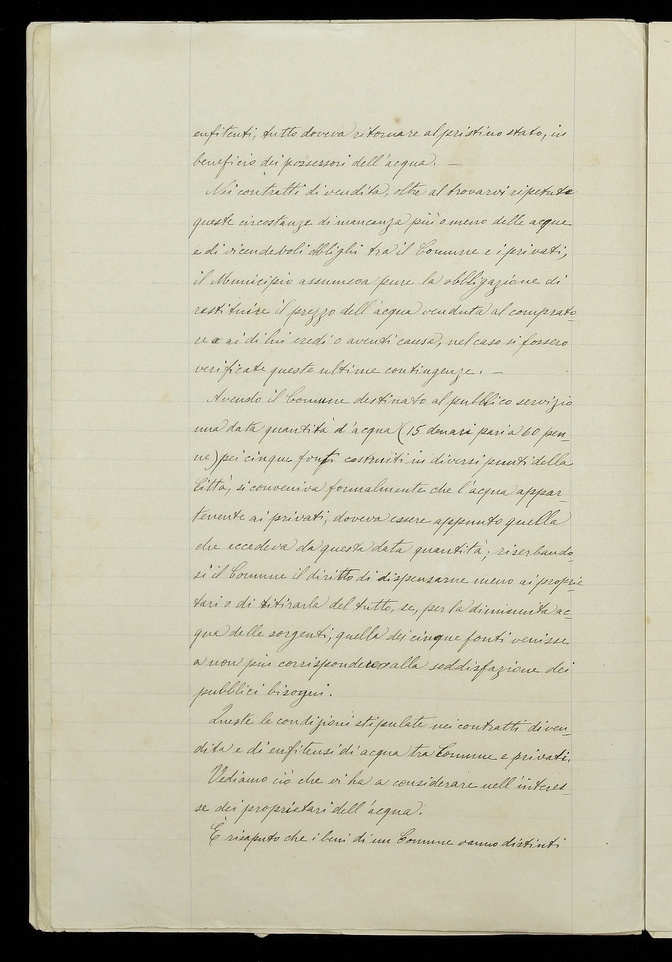 enfitenti, tutto doveva ritornare al pristino stato, in
beneficio dei possessori dell'acqua. —
Nei contratti di vendita, oltre al trovarvi ripetute
queste circostanze di mancanza più o meno delle acque
e di vicendevoli obblighi tra il Comune e i privati,
il Municipio assumeva pure la obbligazione di
restituire il prezzo dell'acqua venduta al comprato-
re o ai di lui eredi o aventi causa, nel caso si fossero
verificate queste ultime contingenze. —
Avendo il Comune destinato al pubblico servizio
una data quantità d'acqua (15 denari pari a 60 pen-
ne) pei cinque fonti costruiti in diversi punti della
Città, si conveniva formalmente che l'acqua appar-
tenente ai privati, doveva essere appunto quella
che eccedeva da questa data quantità; riserbando-
si il Comune il diritto di dispensarne meno ai proprie
tari o di ritirarla del tutto, se, per la diminuita ac-
qua delle sorgenti, quella dei cinque fonti venisse
a non più corrispondere alla soddisfazione dei
pubblici bisogni.
Queste le condizioni stipulate nei contratti di ven-
dita e di enfitensi di acqua tra Comune e privati.
Vediamo ciò che vi ha a considerare nell'interes-
se dei proprietari dell'acqua.
È risaputo che i beni di un Comune vanno distinti